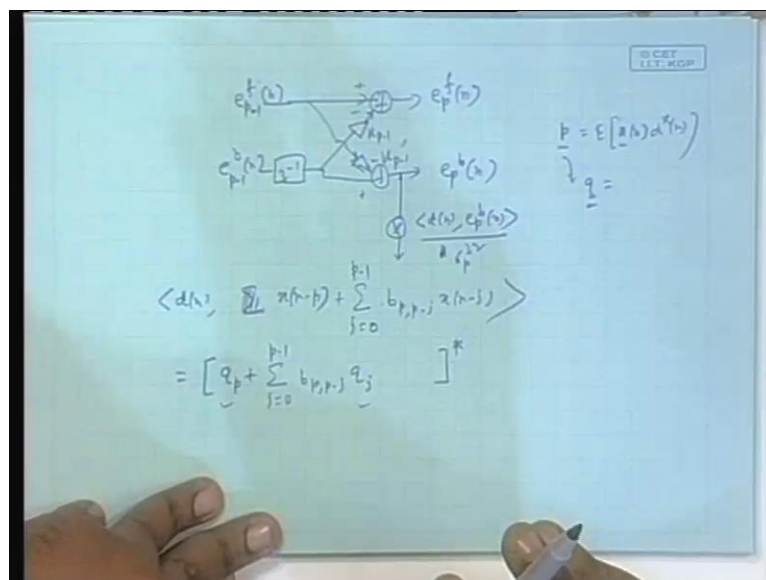 © CET
I.I.T. KGP
e_{p-1}^f(n) + e_p^f(n)
- k_{p-1}
p = E[x(n) d*(n)]
e_{p-1}^b(n) z^{-1} - k_{p-1} e_p^b(n)
+
q =
x <d(n), e_p^b(n)>
σ_p^{b2}
<d(n), x(n-p) + \sum_{j=0}^{p-1} b_{p,p-j} x(n-j)>
= [q_p + \sum_{j=0}^{p-1} b_{p,p-j} q_j ]^*